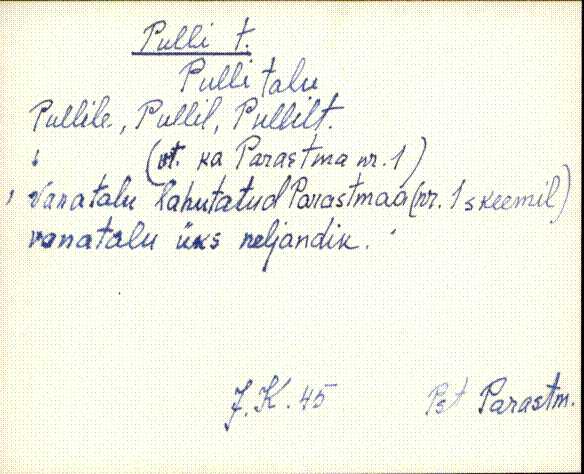 Pulli t.
Pulli talu
Pullile, Pullil, Pullilt.
(vt. ka Parastma nr. 1)
Vanatalu lahutatud Parastmaa (nr. 1 skeemil)
vanatalu üks neljandik.
J. K. 45 Pst Parastm.